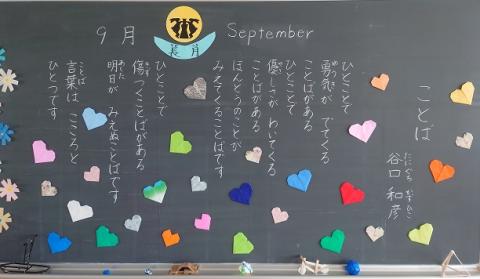 9月 September
長月
ことば
谷口 和彦
ひとことで
勇気が でてくる
ことばがある
ひとことで
優しさが わいてくる
ことばがある
ほんとうのことが
みえてくることばです
ひとことで
傷つくことばがある
明日が みえぬことばです
言葉は こころと
ひとつです